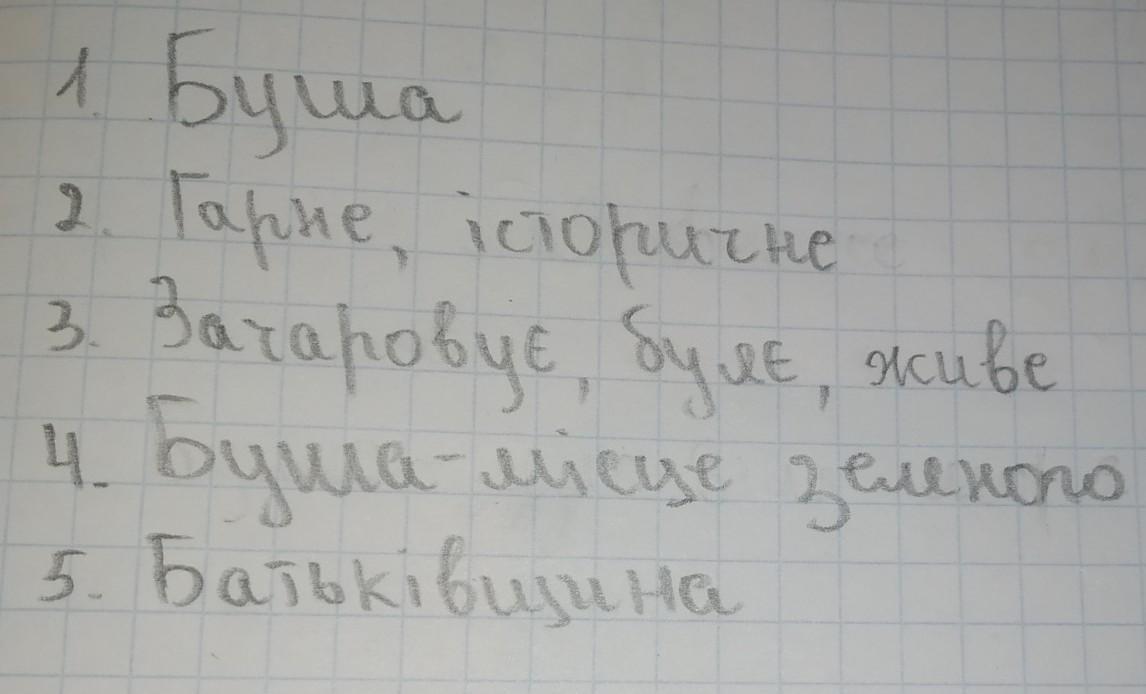 1. Буша
2. Гарне, історичне
3. Зачаровує, буяє, живе
4. Буша - місце зеленого
5. Батьківщина